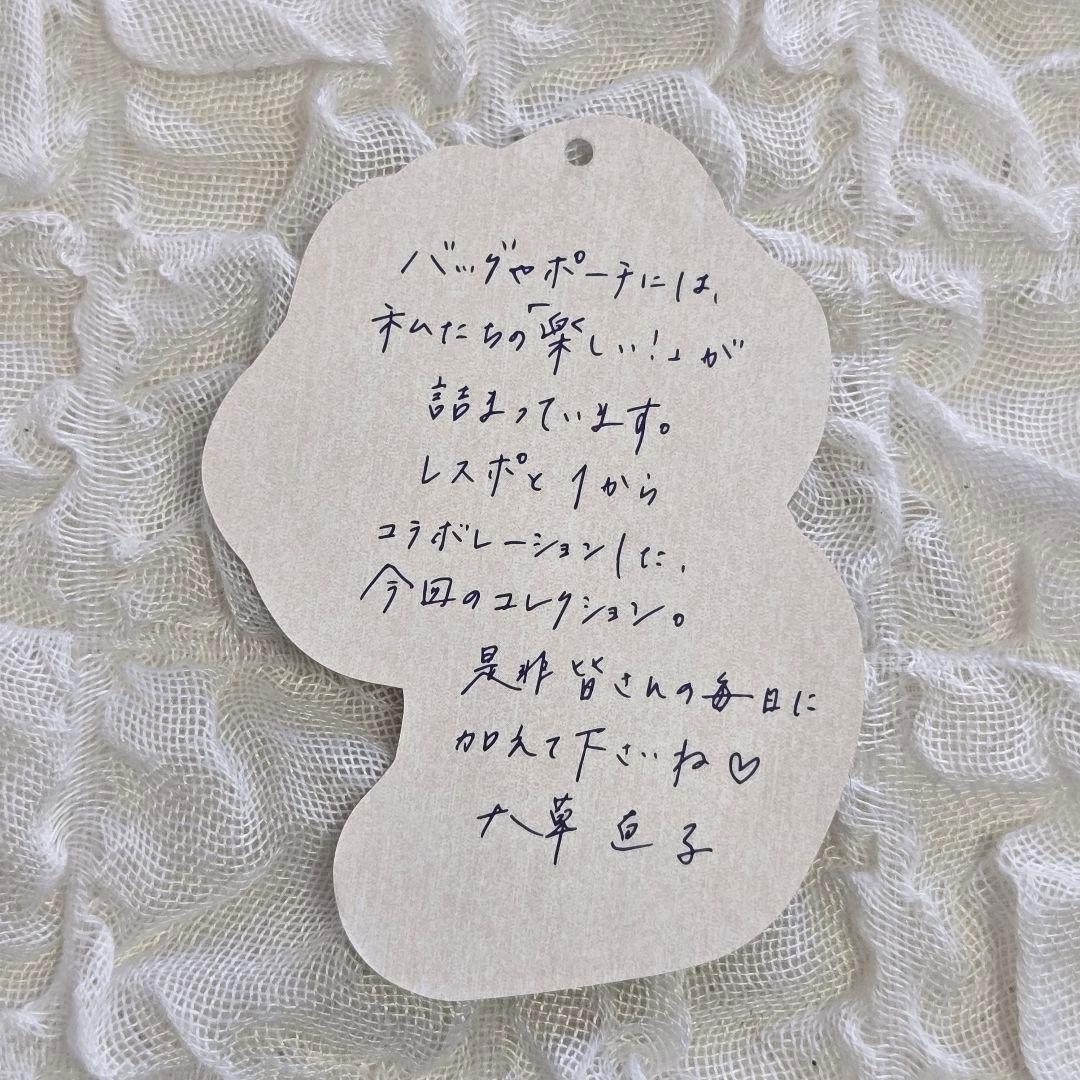 バッグやポーチには、
私たちの「楽しい!」が
詰まっています。
レスポと1から
コラボレーションした、
今回のコレクション。
是非皆さんの毎日に
加えて下さいね♡
大草 直子